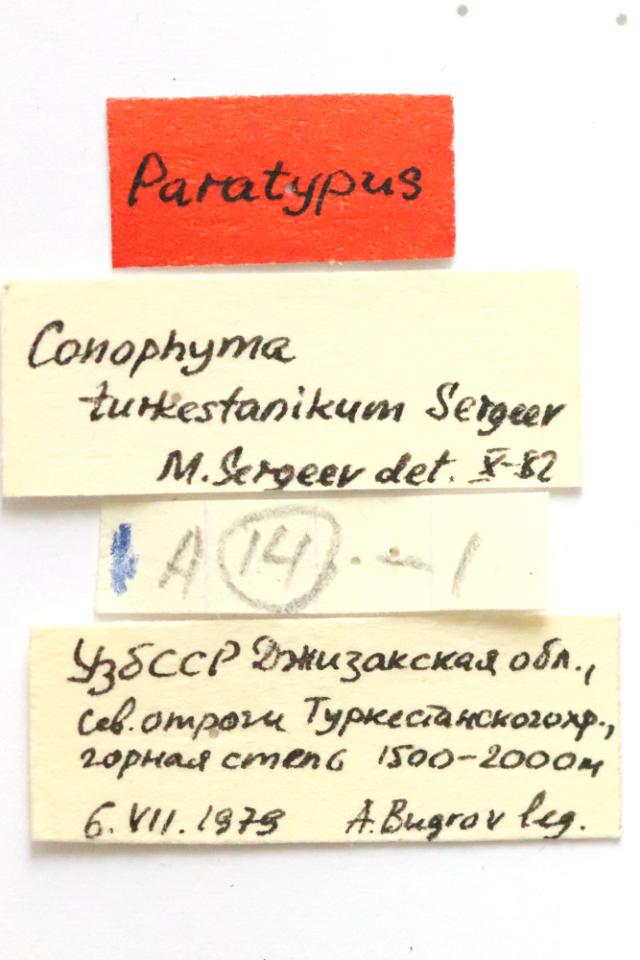 Paratypus
Conophyma
turkestanikum Sergeev
M. Sergeev det. X-82
A 14 . - 1
УзбССР Джизакская обл.,
сев. отроги Туркестанского хр.,
горная степь 1500-2000м
6.VII.1979 A. Bugrov leg.